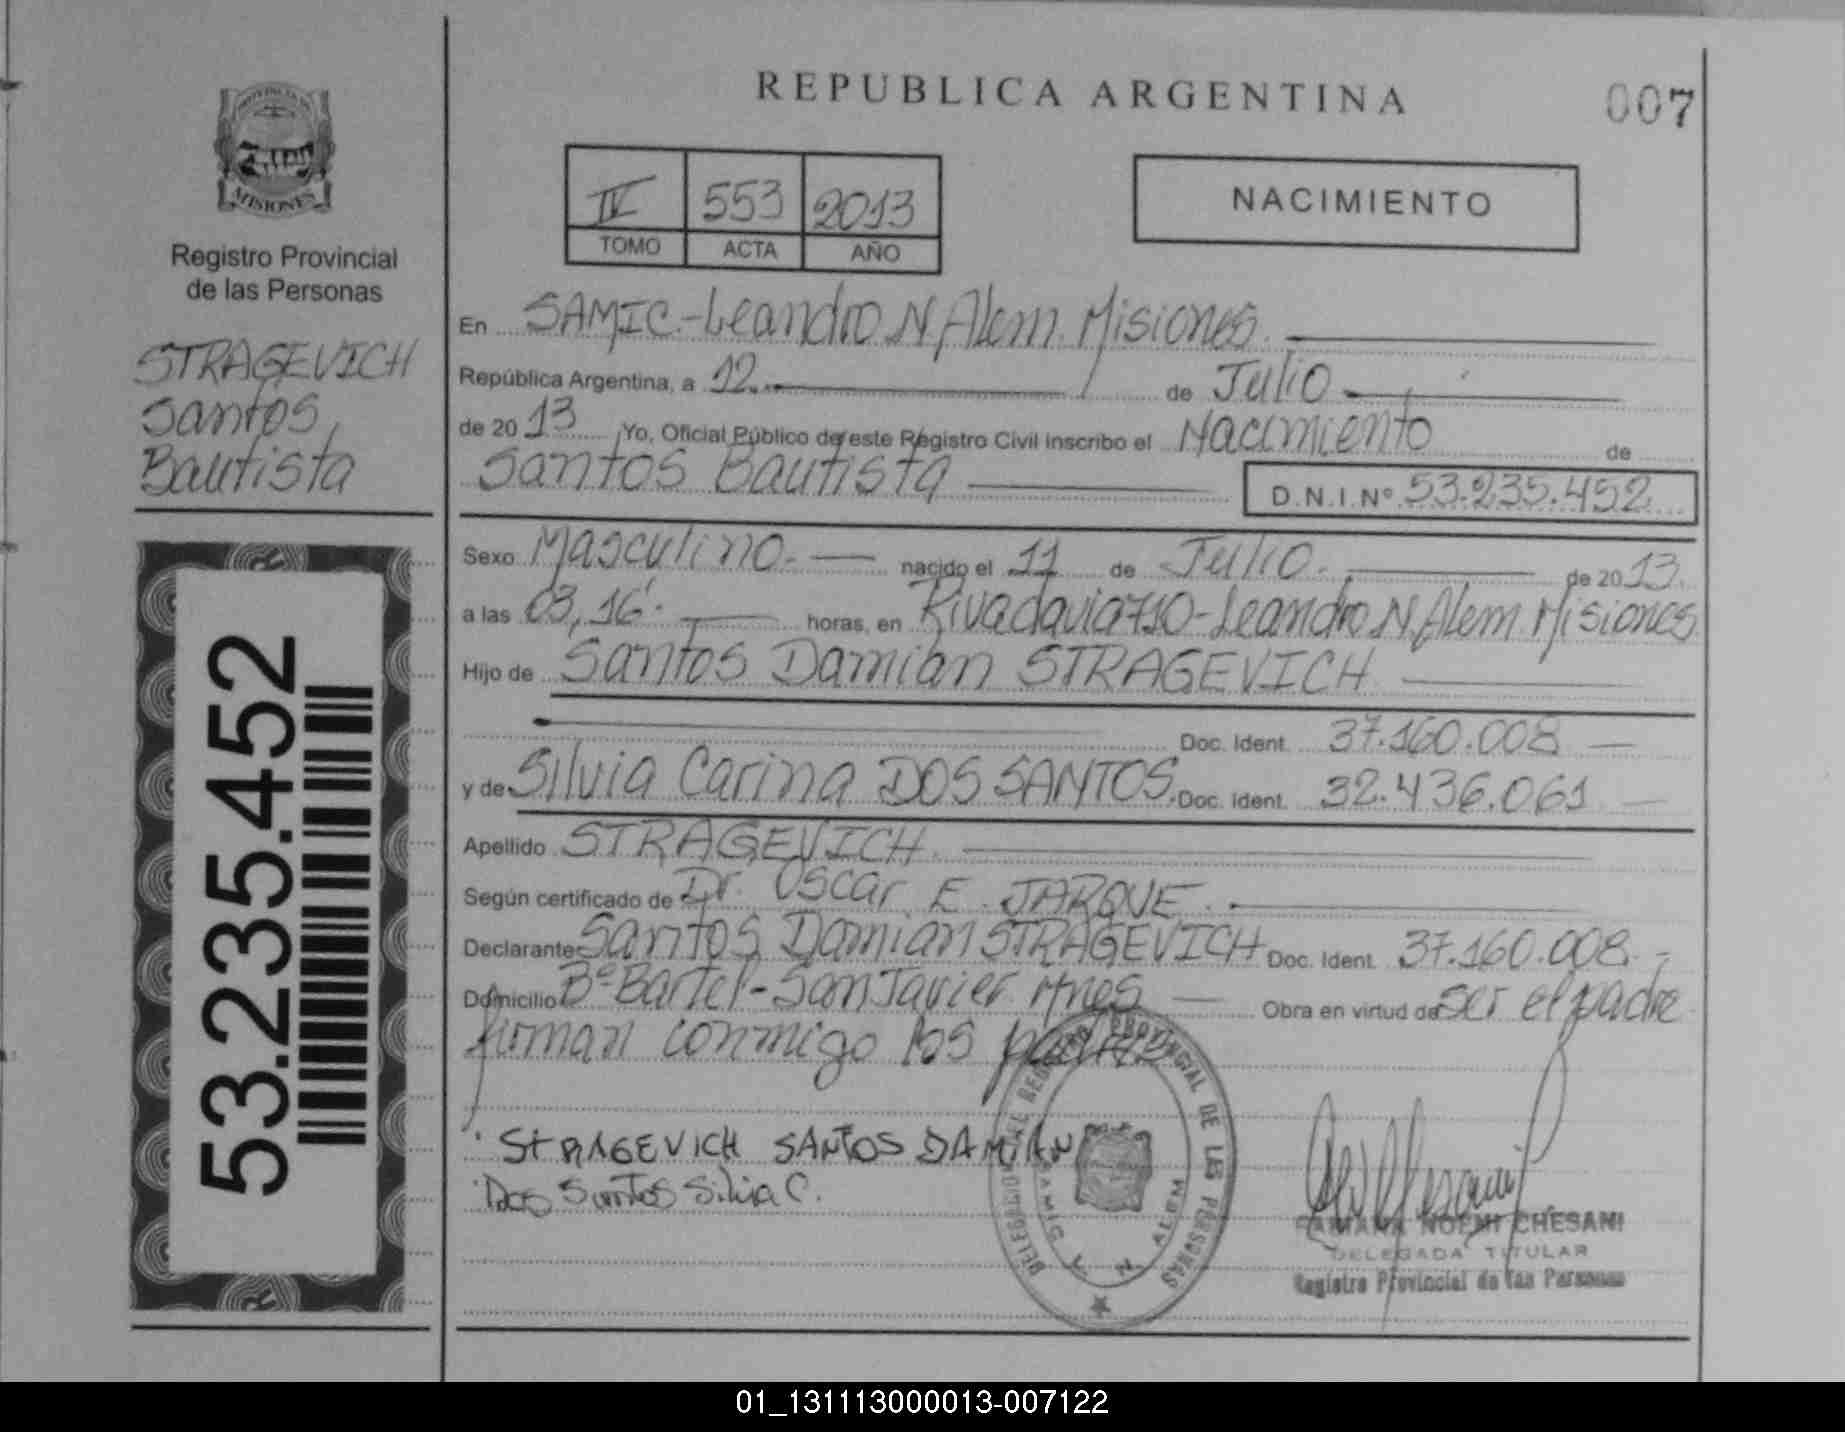 REPUBLICA ARGENTINA
007
PROVINCIA DE
MISIONES
Registro Provincial
de las Personas
STRAGEVICH
Santos
Bautista
53.235.452
IV 553 2013
TOMO ACTA AÑO
NACIMIENTO
En SAMIC.-Leandro N. Alem. Misiones.
República Argentina, a 12. de Julio
de 2013 Yo, Oficial Público de este Registro Civil inscribo el Nacimiento de
Santos Bautista D.N.I.Nº 53.235.452
Sexo Masculino. nacido el 11 de Julio. de 2013.
a las 03,16'. horas, en Rivadavia 710-Leandro N. Alem. Misiones
Hijo de Santos Damian STRAGEVICH
Doc. Ident. 37.160.008
y de Silvia Carina DOS SANTOS. Doc. Ident. 32.436.061
Apellido STRAGEVICH.
Según certificado de Dr. Oscar E. JARQUE.
Declarante Santos Damian STRAGEVICH Doc. Ident. 37.160.008.-
Domicilio Bº Bartel-San Javier Mnes Obra en virtud de ser el padre
firman conmigo los padres
STRAGEVICH SANTOS DAMIAN
Dos Santos Silvia C.
REGISTRO PROVINCIAL DE LAS PERSONAS
SAMIC L. N. ALEM
FABIANA NOEMI CHESANI
DELEGADA TITULAR
Registro Provincial de las Personas
01_131113000013-007122